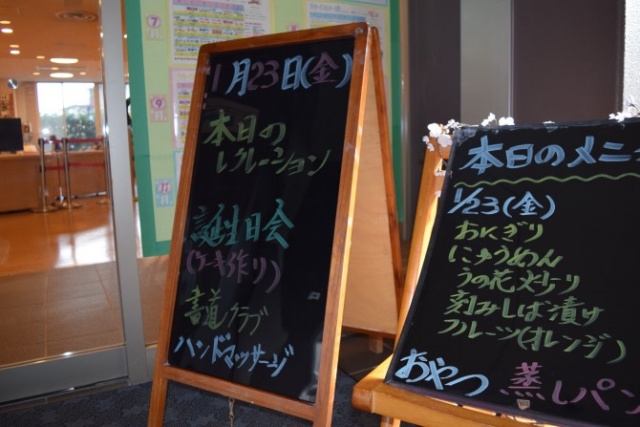 1月23日(金)
本日の
レクレーション
誕生日会
(ケーキ作り)
書道クラブ
ハンドマッサージ
本日のメニ
1/23(金)
おにぎり
にゅうめん
うの花炒り
刻みしば漬け
フルーツ(オレンジ)
おやつ 蒸しパン